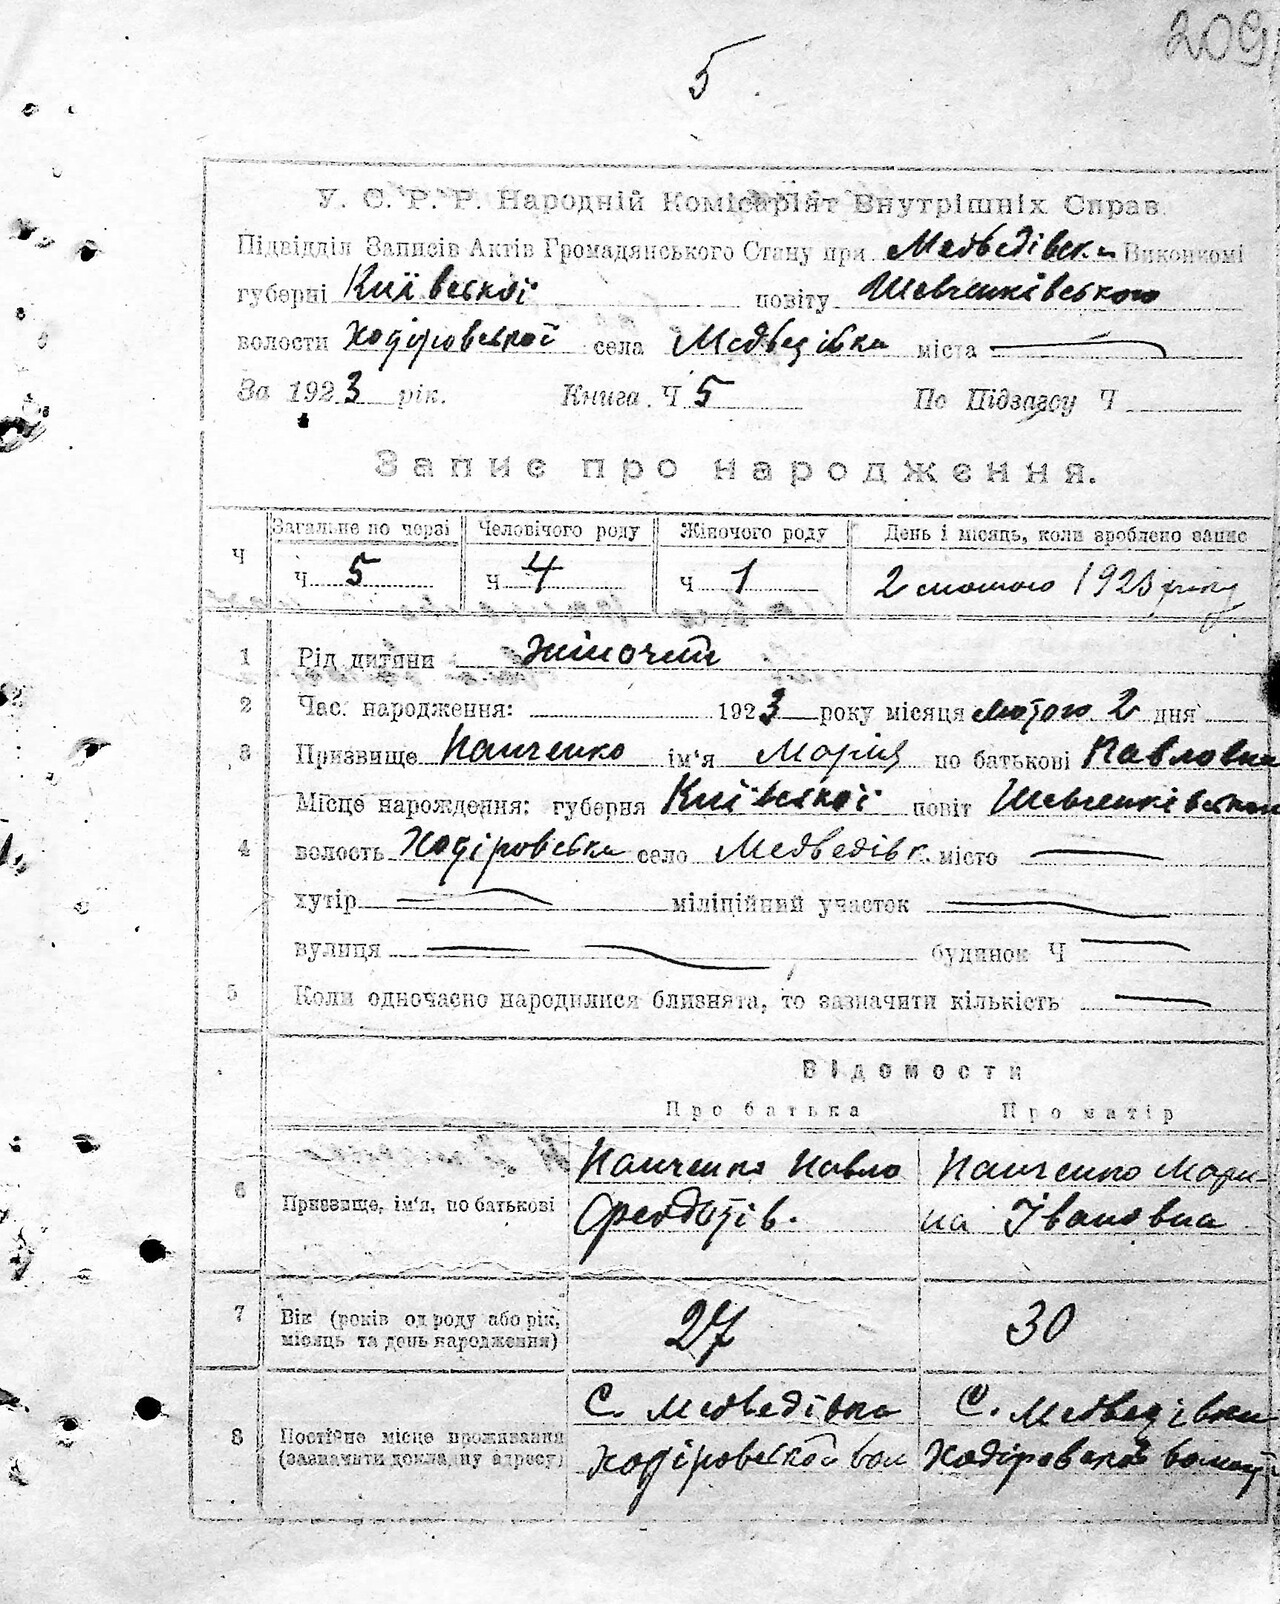 209
5
У. С. Р. Р. Народній Комісаріят Внутрішніх Справ.
Підвідділ Записів Актів Громадянського Стану при Медведівск. Виконкомі
губерні Київської повіту Шевченківського
волости Ходорівської села Медведівка міста —
За 1923 рік. Книга Ч 5 По Підзагсу Ч
Запис про народження.
Ч Загальне по черзі Человічого роду Жіночого роду День і місяць, коли зроблено запис
ч 5 ч 4 ч 1 2 лютого 1923 року
1 Рід дитини жіночий
2 Час народження: 1923 року місяця лютого 2 дня
3 Призвище Панченко ім'я Марія по батькові Павловна
Місце нарождення: губерня Київської повіт Шевченківськом
4 волость Ходіровська село Медведівк. місто —
хутір — міліційний участок —
вулиця — — будинок Ч —
5 Коли одночасно народилися близнята, то зазначити кількість —
Відомости
Про батька Про матір
6 Призвище, ім'я, по батькові Панченко Павло Панченко Мари-
Феодотів. на Івановна
7 Вік (років од роду або рік, 27 30
місяць та день народження)
8 Постійне місце проживання С. Медведівка С. Медведівка
(зазначити докладну адресу) Ходіровской вол Ходіровской волості